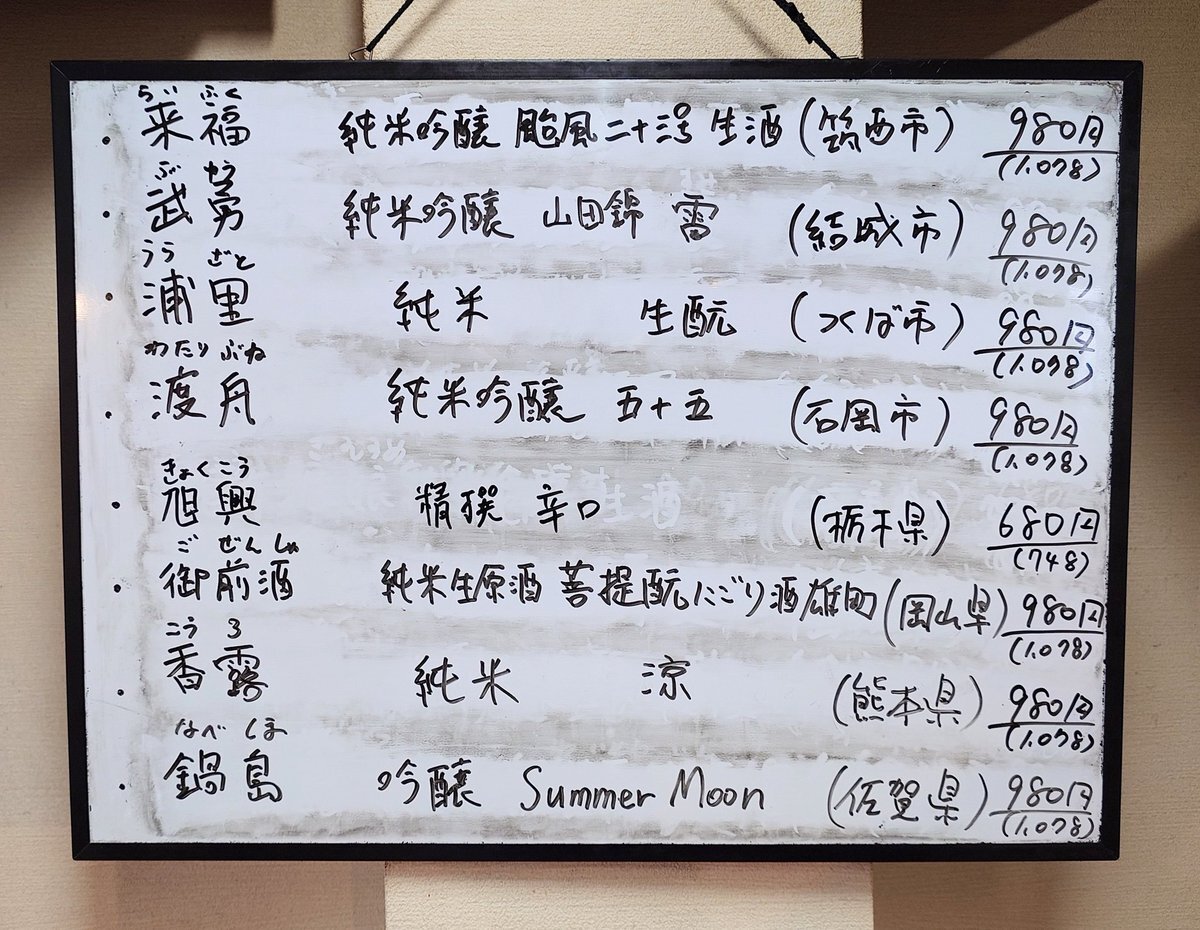 らい ふく
・来福 純米吟醸 颱風二十三号 生酒 (筑西市) 980円
(1.078)
ぶ ゆう
・武勇 純米吟醸 山田錦 雷 (結城市) 980円
(1.078)
うら ざと
・浦里 純米 生酛 (つくば市) 980円
(1.078)
わたり ぶね
・渡舟 純米吟醸 五十五 (石岡市) 980円
(1.078)
きょく こう
・旭興 精撰 辛口 (栃木県) 680円
(748)
ご ぜん しゅ
・御前酒 純米生原酒 菩提酛 にごり酒雄町 (岡山県) 980円
(1.078)
こう ろ
・香露 純米 涼 (熊本県) 980円
(1.078)
なべ しま
・鍋島 吟醸 Summer Moon (佐賀県) 980円
(1.078)